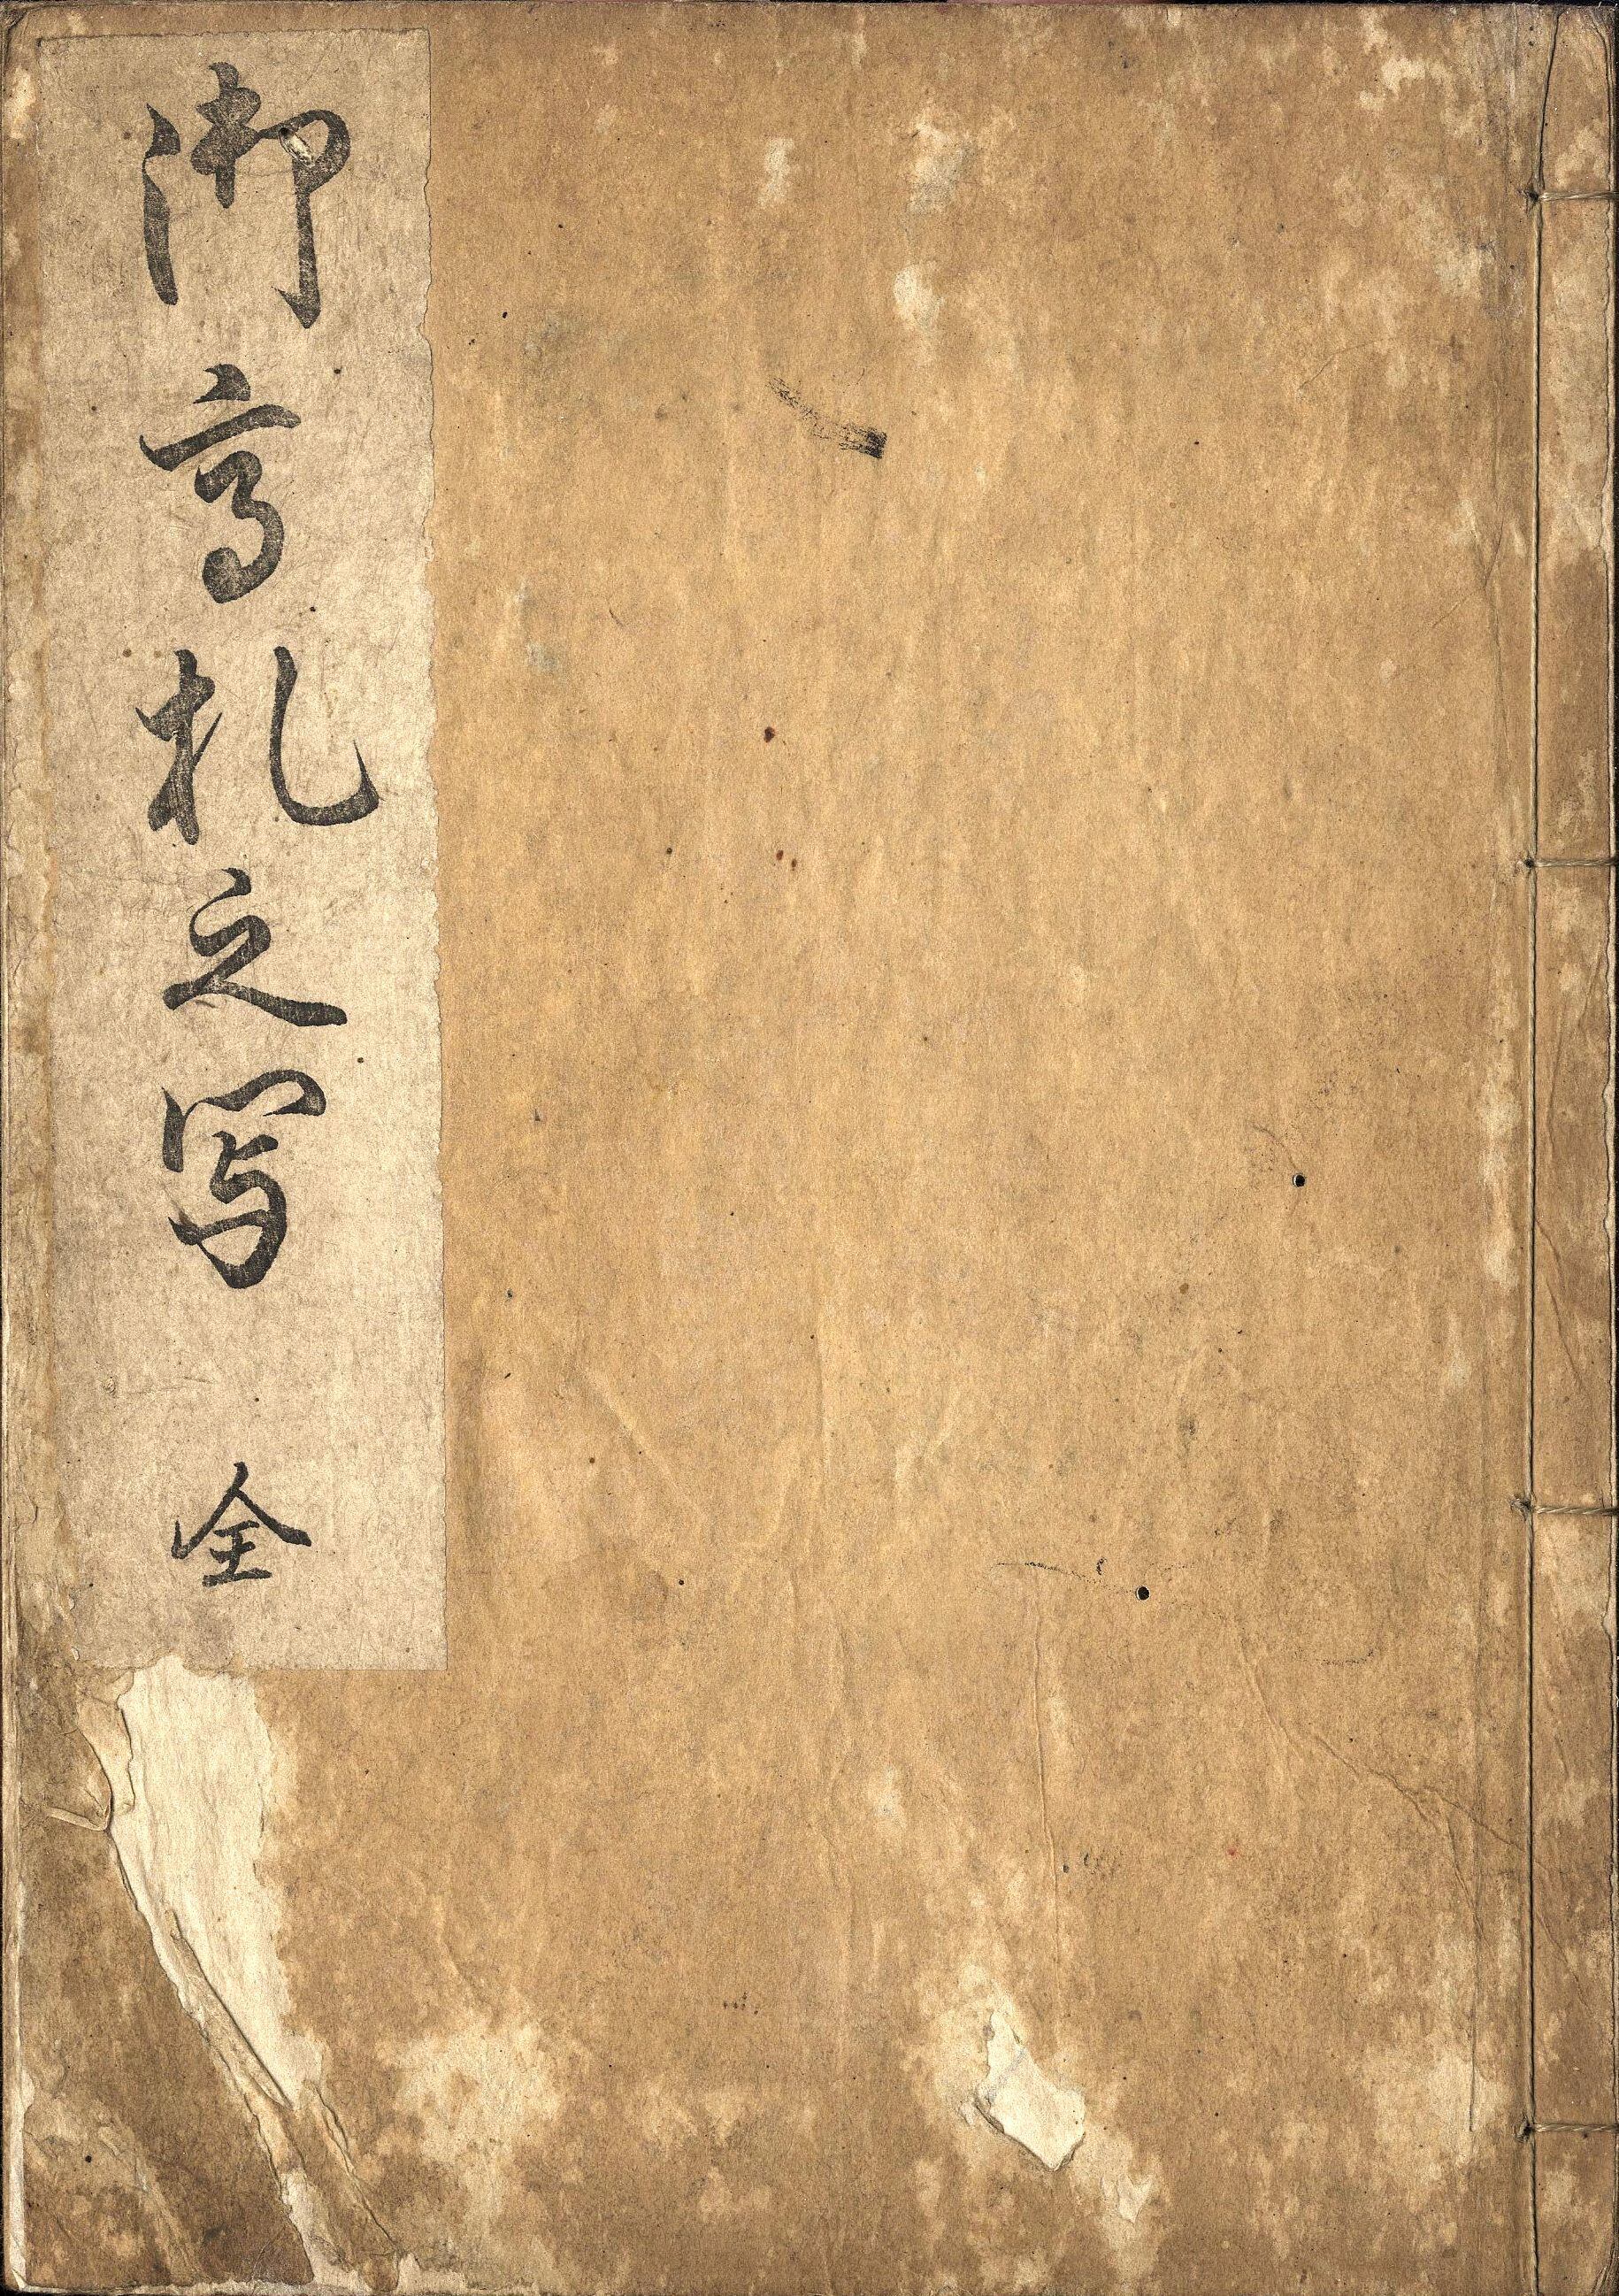 御高札之写 全